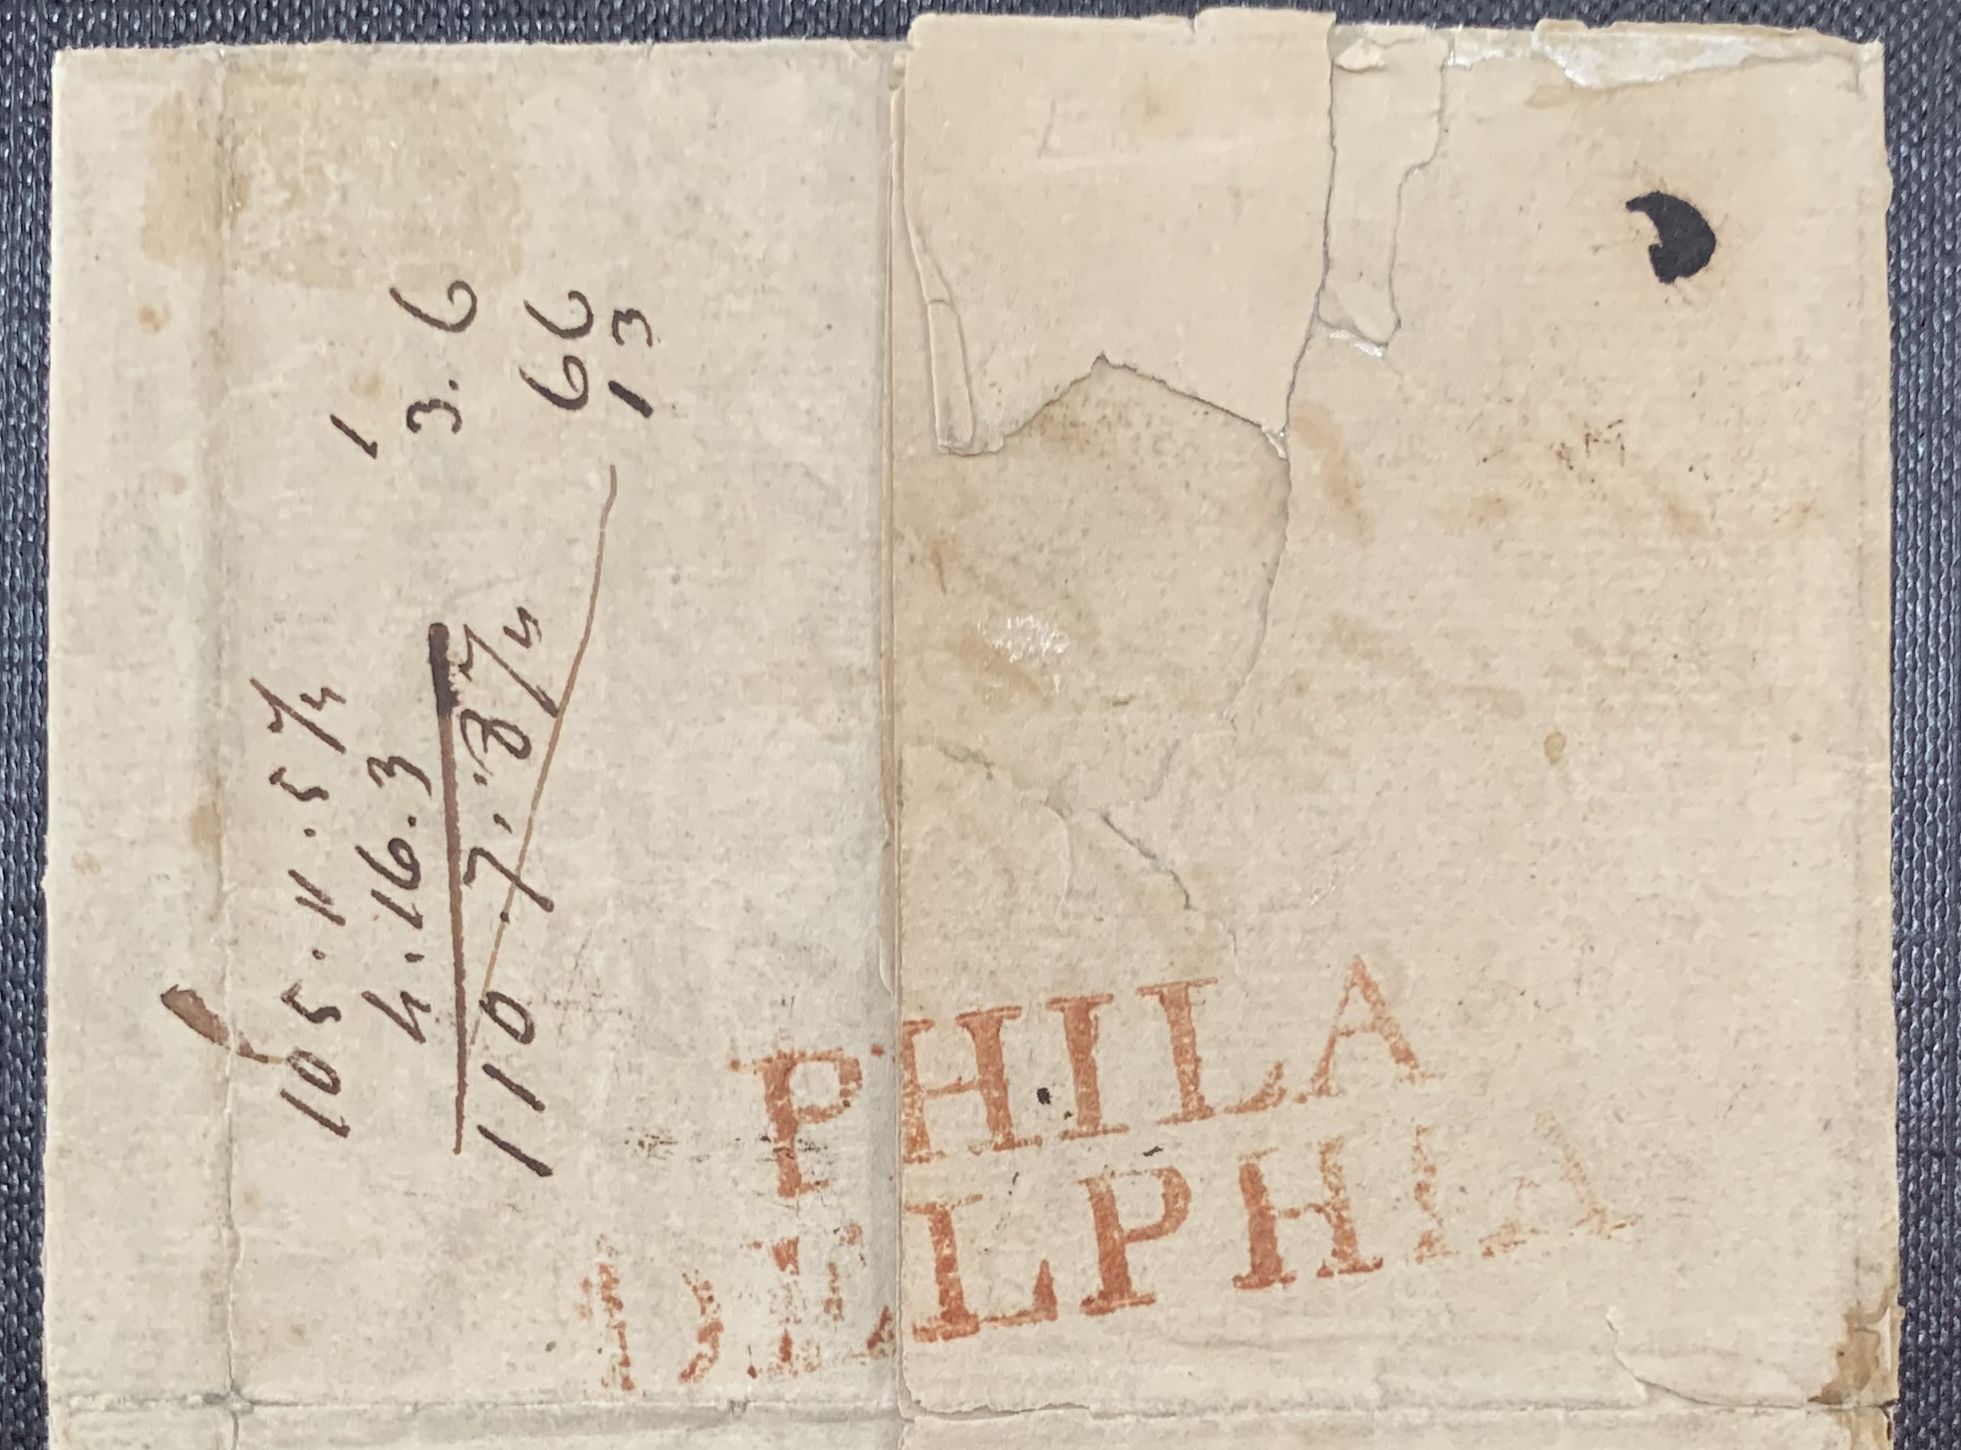 105 . 11 . 5 1/4
4 . 16 . 3
110 . 7 . 8 1/4
1
3 . 6
66
13
PHILA
DELPHIA